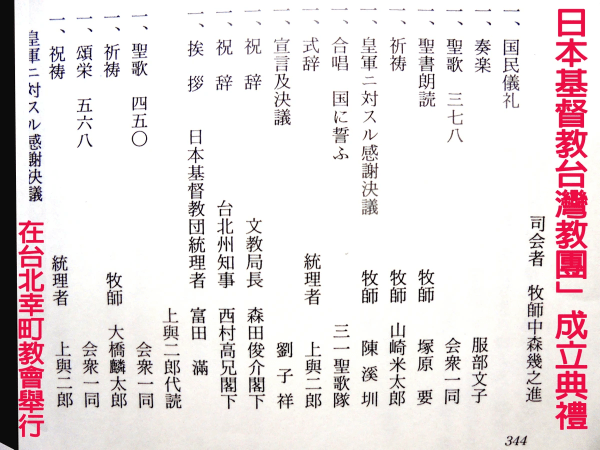 日本基督教台灣教團」成立典禮
司会者 牧師中森幾之進
一、国民儀礼
一、奏楽 服部文子
一、聖歌 三七八 会衆一同
一、聖書朗読 牧師 塚原 要
一、祈祷 牧師 山崎米太郎
一、皇軍ニ対スル感謝決議 牧師 陳 溪 圳
一、合唱 国に誓ふ 三一聖歌隊
一、式辞 統理者 上與二郎
一、宣言及決議 劉 子 祥
一、祝 辞 文教局長 森田俊介閣下
一、祝 辞 台北州知事 西村高兄閣下
一、挨 拶 日本基督教団統理者 富田 満
上與二郎代読
一、聖歌 四五〇 会衆一同
一、祈祷 牧師 大橋麟太郎
一、頌栄 五六八 会衆一同
一、祝祷 統理者 上與二郎
皇軍ニ対スル感謝決議
在台北幸町教會舉行
344